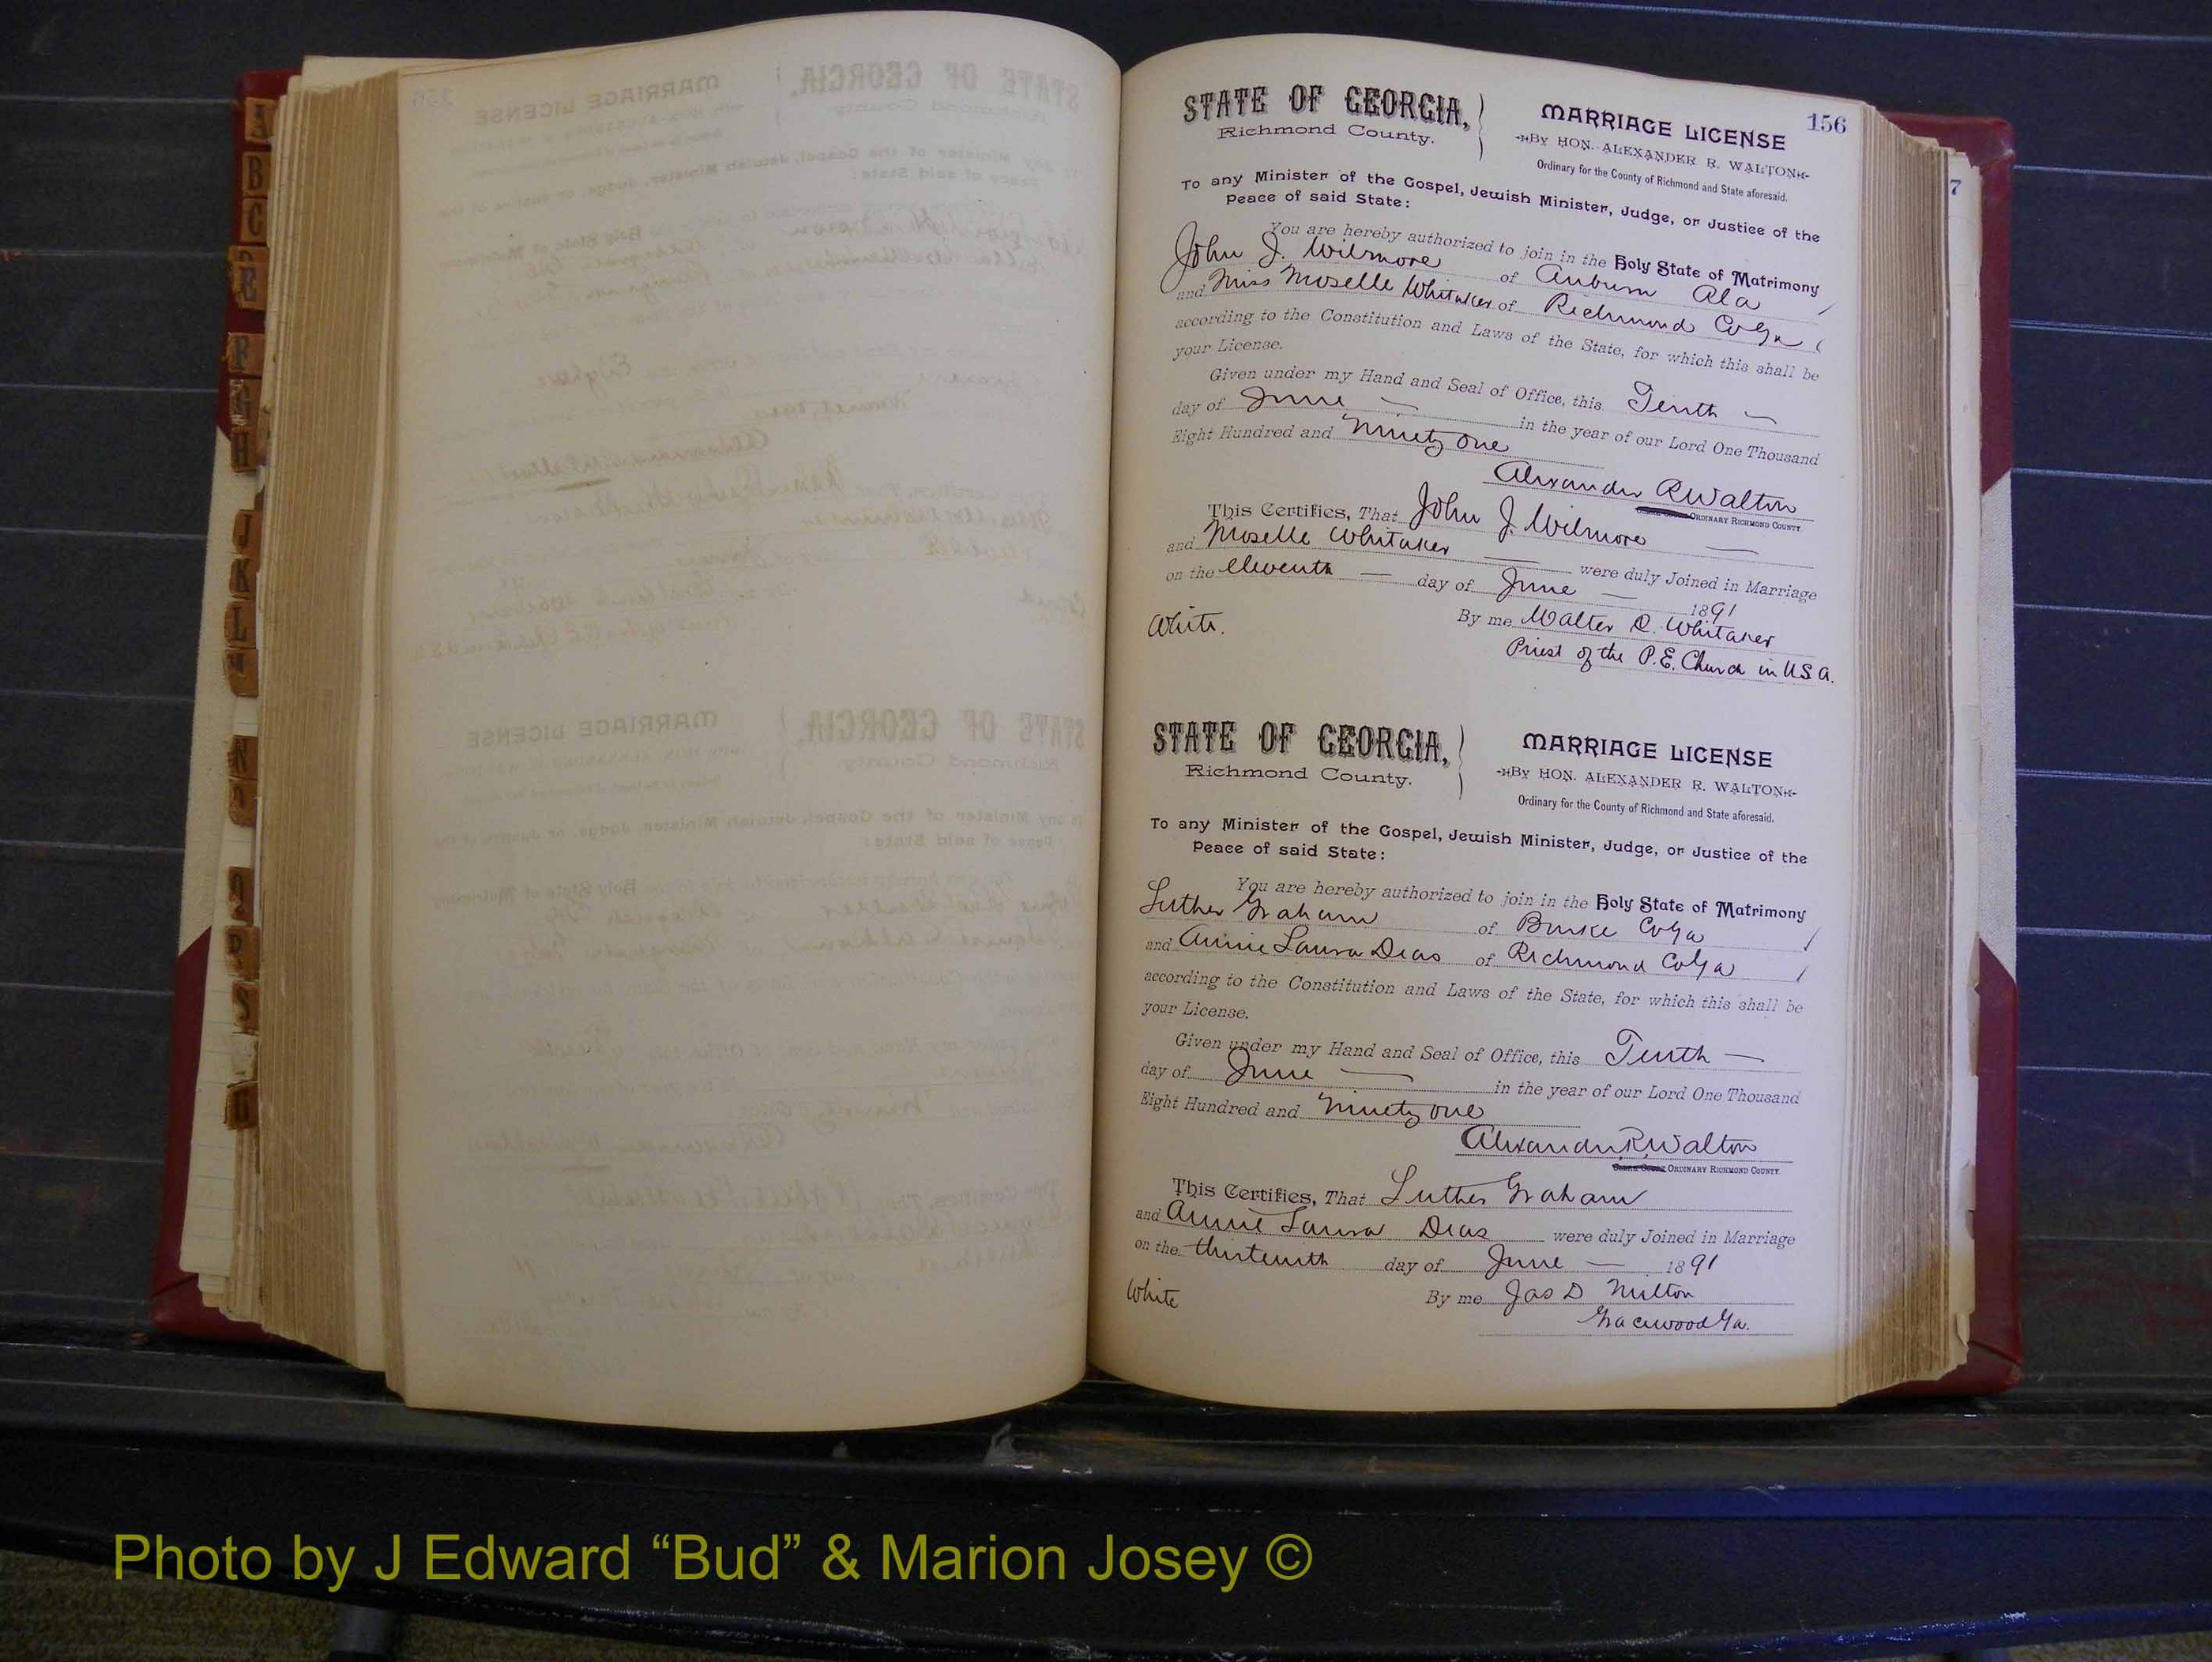 156
STATE OF GEORGIA,
Richmond County.
MARRIAGE LICENSE
By HON. ALEXANDER R. WALTON
Ordinary for the County of Richmond and State aforesaid.
To any Minister of the Gospel, Jewish Minister, Judge, or Justice of the
Peace of said State:
You are hereby authorized to join in the Holy State of Matrimony
John J. Wilmore of Auburn Ala
and Miss Moselle Whitaker of Richmond Co Ga
according to the Constitution and Laws of the State, for which this shall be
your License.
Given under my Hand and Seal of Office, this Tenth
day of June in the year of our Lord One Thousand
Eight Hundred and Ninety one
Alexander R Walton
ORDINARY RICHMOND COUNTY
This Certifies, That John J. Wilmore
and Moselle Whitaker were duly Joined in Marriage
on the eleventh day of June 1891
White. By me Walter C. Whitaker
Priest of the P.E. Church in U S A.
STATE OF GEORGIA,
Richmond County.
MARRIAGE LICENSE
By HON. ALEXANDER R. WALTON
Ordinary for the County of Richmond and State aforesaid.
To any Minister of the Gospel, Jewish Minister, Judge, or Justice of the
Peace of said State:
You are hereby authorized to join in the Holy State of Matrimony
Luther Graham of Burke Co Ga
and Annie Laura Deas of Richmond Co Ga
according to the Constitution and Laws of the State, for which this shall be
your License.
Given under my Hand and Seal of Office, this Tenth
day of June in the year of our Lord One Thousand
Eight Hundred and Ninety one
Alexander R. Walton
ORDINARY RICHMOND COUNTY.
This Certifies, That Luther Graham
and Annie Laura Deas were duly Joined in Marriage
on the thirteenth day of June 1891
White By me Jas D Milton
Gracewood Ga.
7
A
B
C
D
E
F
G
H
J
K
L
M
N
O
Q
R
S
G
Photo by J Edward “Bud” & Marion Josey ©